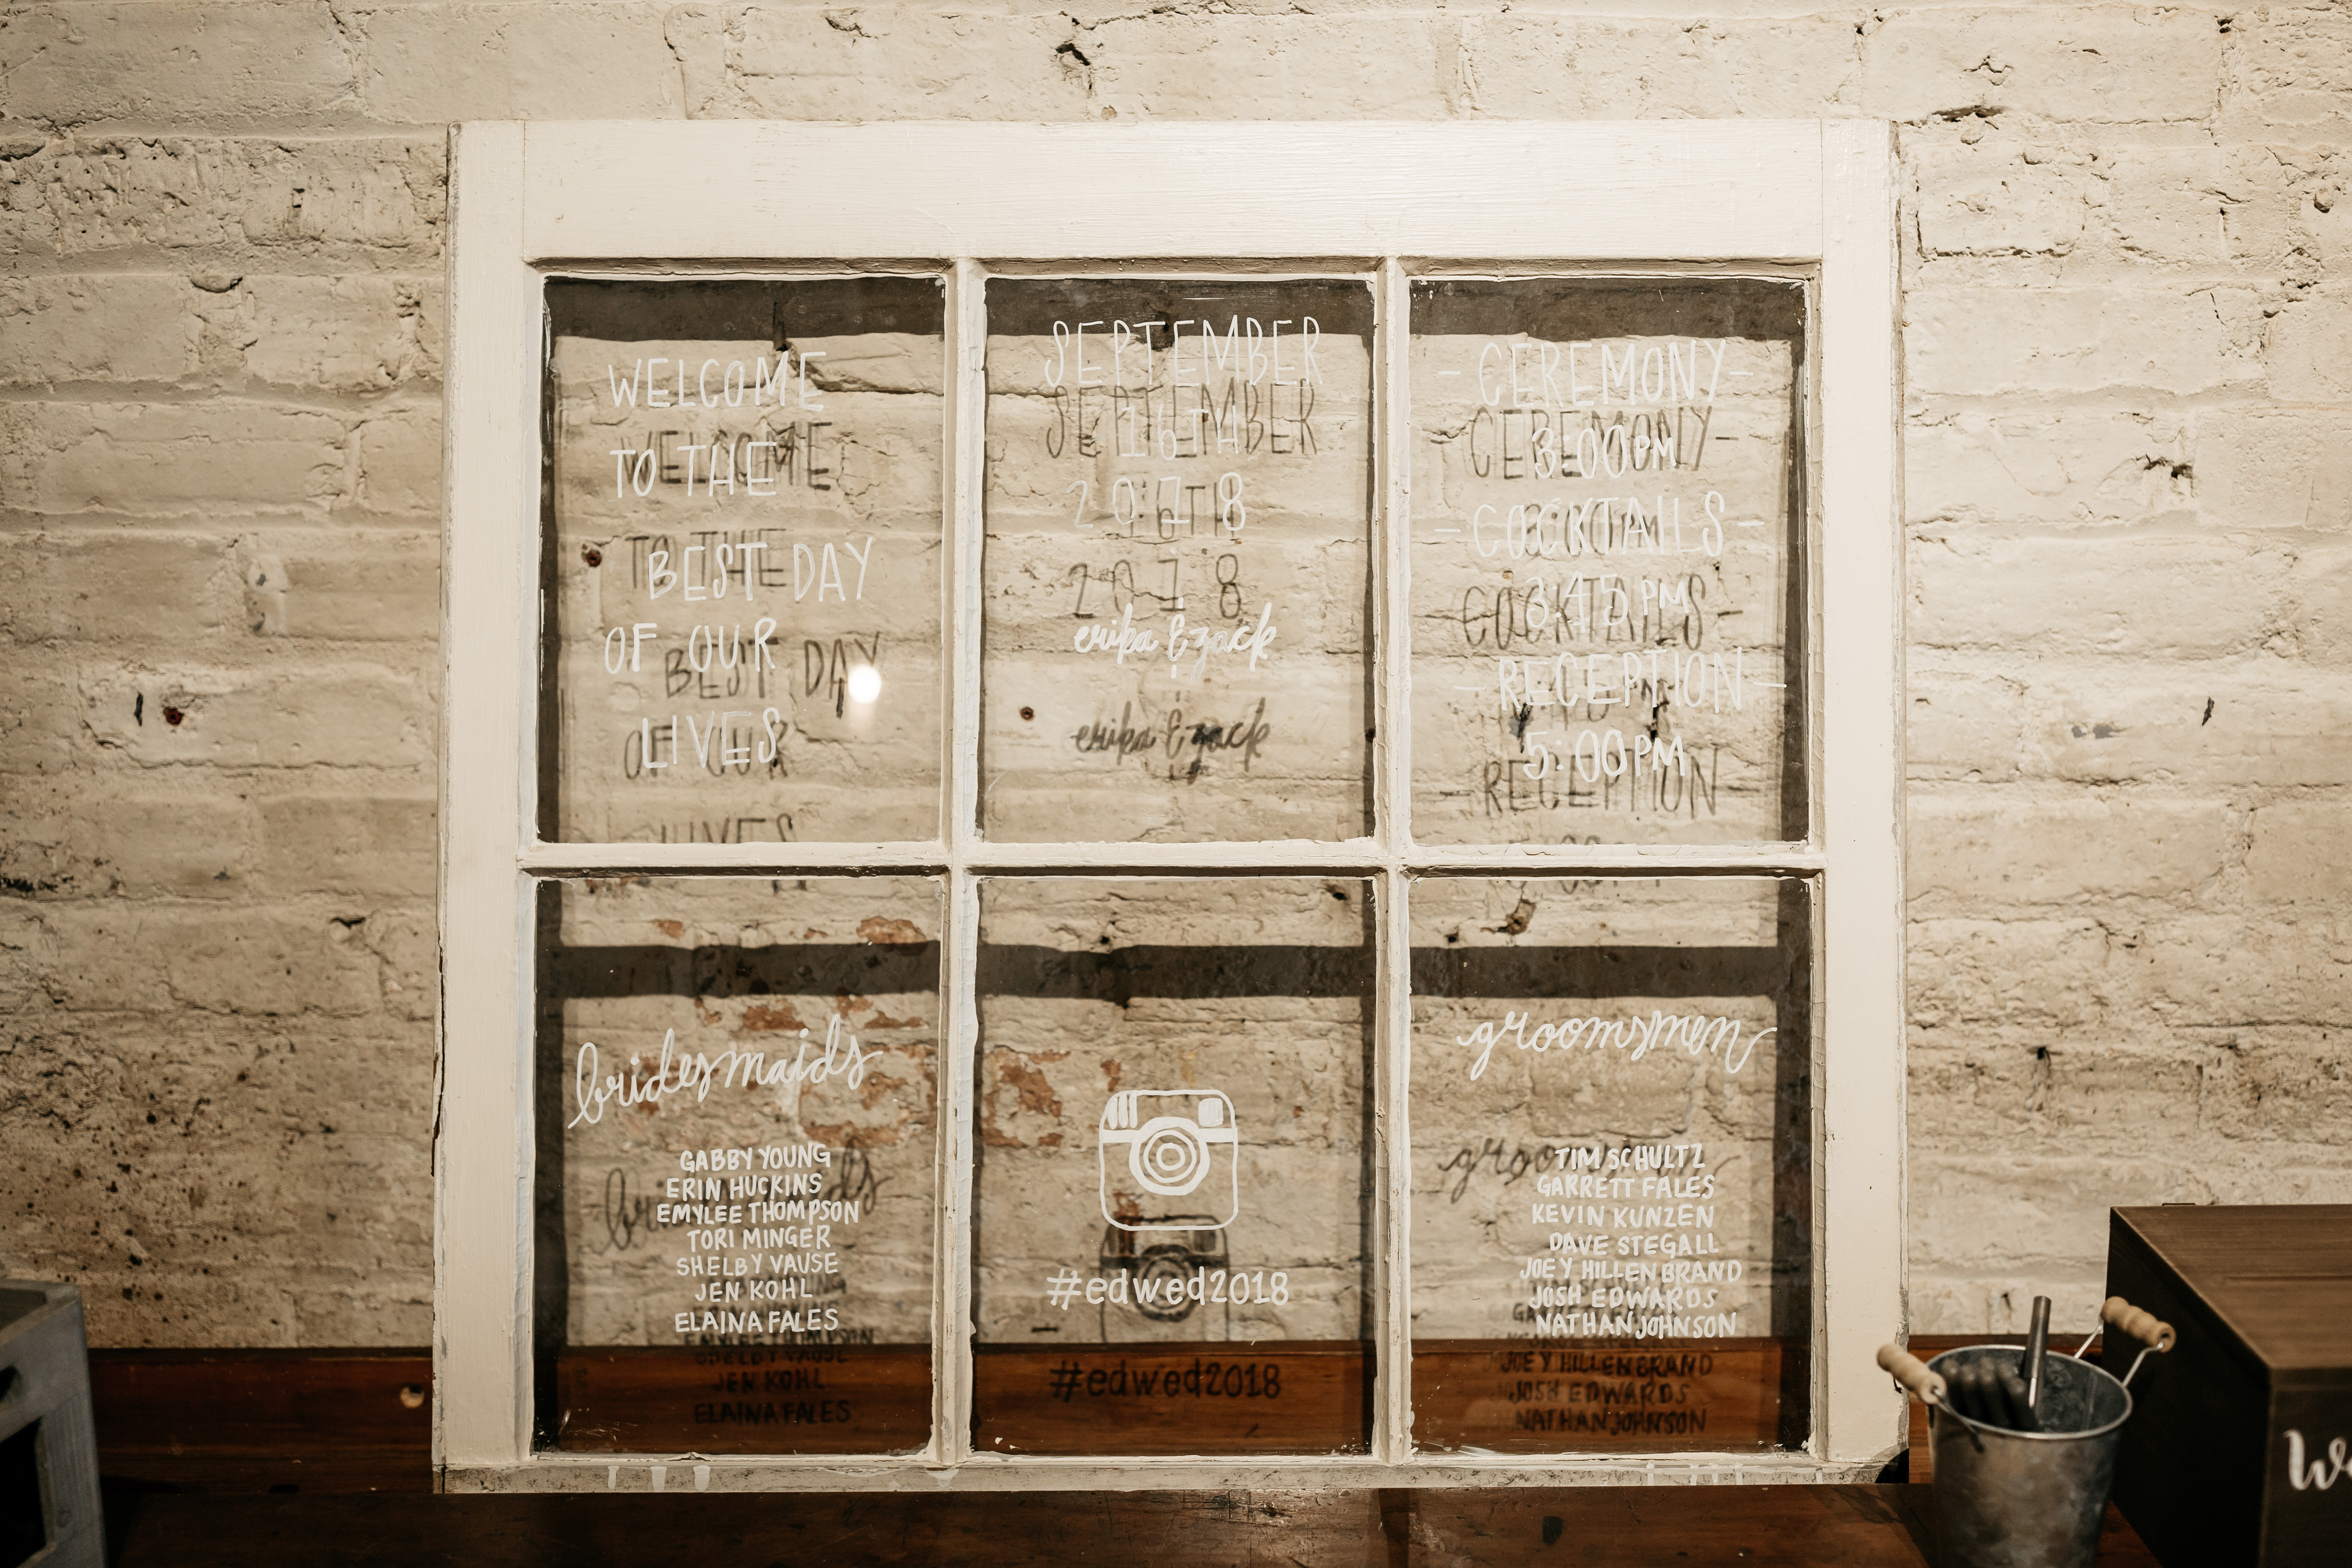 WELCOME
TO THE
BEST DAY
OF OUR
LIVES
SEPTEMBER
16TH
2018
erika & zack
- CEREMONY -
3:00PM
- COCKTAILS -
3:45PM
- RECEPTION -
5:00PM
bridesmaids
GABBY YOUNG
ERIN HUCKINS
EMYLEE THOMPSON
TORI MINGER
SHELBY VAUSE
JEN KOHL
ELAINA FALES
#edwed2018
groomsmen
TIM SCHULTZ
GARRETT FALES
KEVIN KUNZEN
DAVE STEGALL
JOEY HILLENBRAND
JOSH EDWARDS
NATHAN JOHNSON